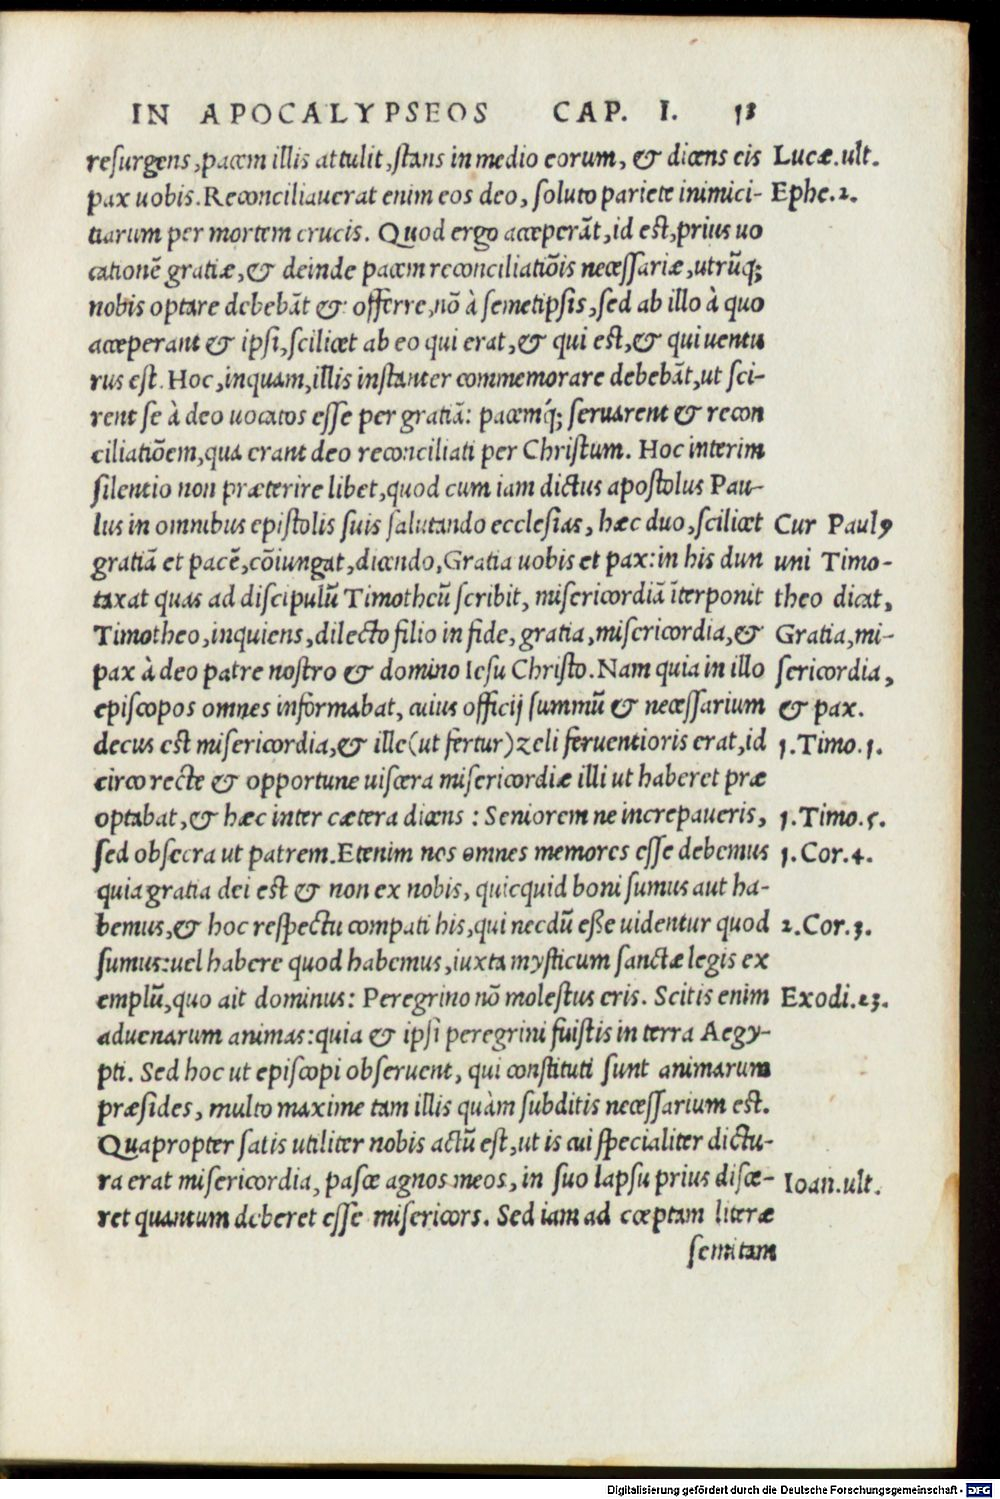 IN APOCALYPSEOS CAP. I. 13
resurgens, pacem illis attulit, stans in medio eorum, & dicens eis Lucæ. ult.
pax uobis. Reconciliauerat enim eos deo, soluto pariete inimici- Ephe. 2.
tiarum per mortem crucis. Quod ergo acceperãt, id est, prius uo
cationẽ gratiæ, & deinde pacem reconciliatiõis necessariæ, utrũq;
nobis optare debebãt & offerre, nõ à semetipsis, sed ab illo à quo
acceperant & ipsi, scilicet ab eo qui erat, & qui est, & qui uentu
rus est. Hoc, inquam, illis instanter commemorare debebãt, ut sci-
rent se à deo uocatos esse per gratiã: pacemq́; seruarent & recon
ciliatiõem, qua erant deo reconciliati per Christum. Hoc interim
silentio non præterire libet, quod cum iam dictus apostolus Pau-
lus in omnibus epistolis suis salutando ecclesias, hæc duo, scilicet Cur Paulꝰ
gratiã et pacẽ, cõiungat, dicendo, Gratia uobis et pax: in his dun uni Timo-
taxat quas ad discipulũ Timotheũ scribit, misericordiã ĩterponit theo dicat,
Timotheo, inquiens, dilecto filio in fide, gratia, misericordia, & Gratia, mi-
pax à deo patre nostro & domino Iesu Christo. Nam quia in illo sericordia,
episcopos omnes informabat, cuius officij summũ & necessarium & pax.
decus est misericordia, & ille (ut fertur) zeli feruentioris erat, id 1. Timo. 1.
circo recte & opportune uiscera misericordiæ illi ut haberet præ
optabat, & hæc inter cætera dicens : Seniorem ne increpaueris, 1. Timo. 5.
sed obsecra ut patrem. Etenim nos omnes memores esse debemus 1. Cor. 4.
quia gratia dei est & non ex nobis, quicquid boni sumus aut ha-
bemus, & hoc respectu compati his, qui necdũ esse uidentur quod 2. Cor. 3.
sumus: uel habere quod habemus, iuxta mysticum sanctæ legis ex
emplũ, quo ait dominus: Peregrino nõ molestus eris. Scitis enim Exodi. 23.
aduenarum animas: quia & ipsi peregrini fuistis in terra Aegy-
pti. Sed hoc ut episcopi obseruent, qui constituti sunt animarum
præsides, multo maxime tam illis quàm subditis necessarium est.
Quapropter satis utiliter nobis actũ est, ut is cui specialiter dictu-
ra erat misericordia, pasce agnos meos, in suo lapsu prius disce- Ioan. ult.
ret quantum deberet esse misericors. Sed iam ad cœptam literæ
semitam
Digitalisierung gefördert durch die Deutsche Forschungsgemeinschaft - DFG